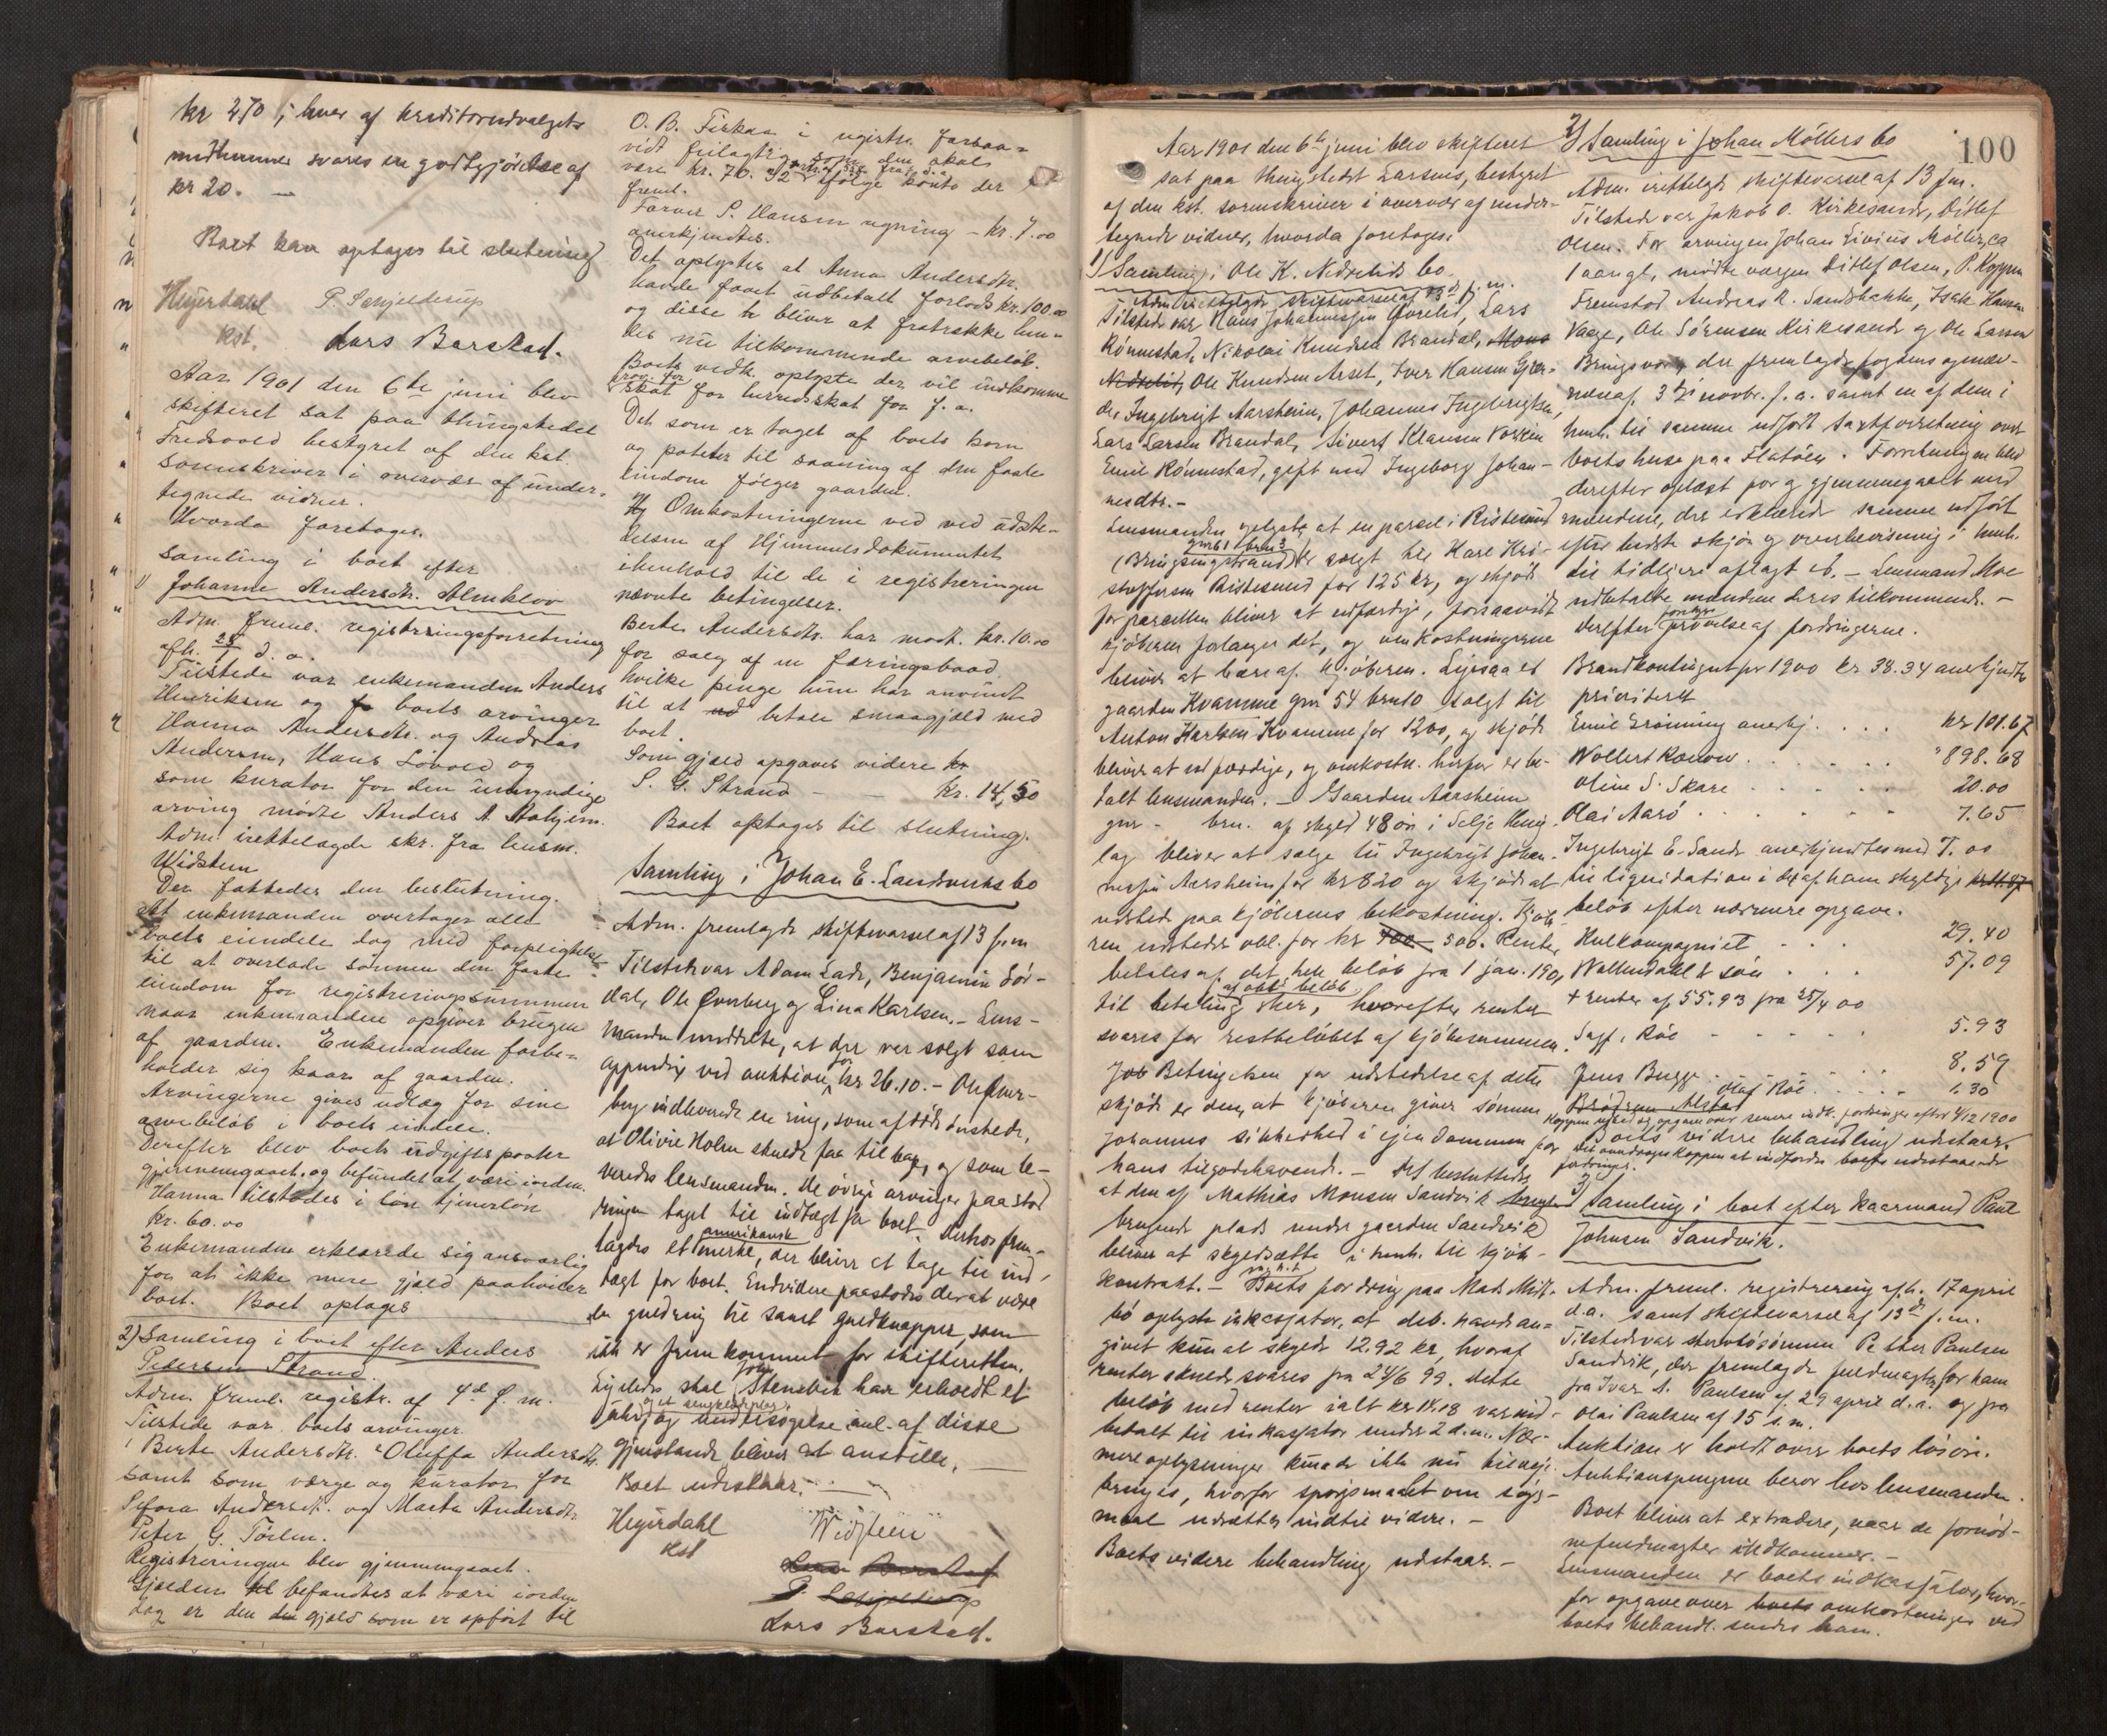 kr 270; hver af kreditorudvalgets
medlemmer svares en godtgjörelse af
kr 20. —
Boet kan optages til slutning
Heyerdahl P. Schjelderup
kst.
Lars Barstad.
Aar 1901 den 6te juni blev
skifteret sat paa thingstedet
Fredsvold bestyret af den kst.
sorenskriver i overvær af under-
tegnede vidner.
Hvorda foretoges.
1) Samling i boet efter
Johanne Andersdtr. Almklov
Adm. freml. registreringsforretning
afh. d. a.
Tilstede var enkemanden Anders
Henriksen og boets arvinger
Hanna Andersdtr. og Andreas
Andersen, Hans Lövold og
som kurator for den umyndige
arving mödte Anders A.
Adm. irettelagde skr. fra lensm.
Widsteen
Der fattedes den beslutning.
At enkemanden overtager alle
boets eiendele dog med forpligtelse
til at overlade sönnen den faste
eiendom for registreringssummen
naar enkemanden opgiver brugen
af gaarden. Enkemanden forbe-
holder sig kaar af gaarden.
Arvingerne gives udlæg for sine
arvebelöb i boets eiendele.
Derefter blev boets udgiftsposter
gjennemgaaet og befundet at være iorden.
Hanna tilstodes i tjenerlön
kr. 60.00
Enkemanden erklærede sig ansvarlig
for at ikke mere gjæld paahviler
boet. Boet optages
2) Samling i boet efter Anders
Pedersen Strand.
Adm. freml. registr. af 4de f. m.
Tilstede var boets arvinger.
Berte Andersdtr. Oluffa Andersdtr.
samt som værge og kurator for
Sefora Andersdt. og Marta Andersdtr
Peter G.
Registreringen blev gjennemgaaet.
Gjælden befandtes at være iorden
dog er den gjæld som er opfört til
O. B. Firkaa i registr. forsaa-
vidt feilagtig som den skal
være kr. 70.92 ifölge konto der
freml.
Farver S. Hansen regning – kr. 7.00
anerkjendtes.
Det oplystes at Anna Andersdtr.
havde faaet udbetalt forlods kr. 100.00
og disse bliver at fratrække hen-
des nu tilkommende arvebelöb.
Boets vedk. oplyste der vil indkomme
krav for
skat for herredsskat for f. a.
Det som er taget af boets korn
og poteter til saaning af den faste
eiendom fölger gaarden.
Omkostningerne ved ved udste-
delsen af Hjemmelsdokumentet
ihenhold til de i registreringen
nævnte betingelser.
Berte Andersdtr. har modt. kr. 10.00
for salg af en færingsbaad
hvilke penge hun har anvendt
til at betale smaagjæld med
boet.
Som gjæld opgaves videre kr
S. G. Strand — kr. 14,50
Boet optages til slutning.
Samling i Johan E. Landverks bo
Adm. fremlagde skiftevarsel af 13 f. m
Tilstede var Adam Lade, Benjamin Lör-
dal, Ole Överberg og Lina Karlsen. – Lens-
manden meddelte, at der var solgt som
appendix ved auktion for kr 26.10. – Ole Över-
berg indleverede en ring, som afdöde önskede,
at Olivie Holm skulde faa tilbage, og som le-
veredes lensmanden. De övrige arvinger paastod
ringen taget til indtægt for boet. Derhos frem-
lagdes et amerikansk merke, der bliver at tage til ind-
tægt for boet. Endvidere paastodes der at være
en guldring til samt guldknapper, som
ikke er fremkommet for skifteretten.
Ligeledes skal John Stensber har erholdt et
uhr og et sengklæplag,
og undersögelse anl. af disse
gjenstande bliver at anstille.
Boet udestaar. —
Heyerdahl Widsteen
kst
Lars Barstad
P. Schjelderup
Lars Barstad.
100
Aar 1901 den 6te juni blev skifteret
sat paa thingstedet Larsnes, bestyret
af den kst. sorenskriver i overvær af under-
tegnede vidner, hvorda foretoges:
1) Samling i Ole K. Nedrelids bo.
Adm irettelagde skiftevarsel af 13de f. m.
Tilstede var Hans Johannessen Övrelid, Lars
Rönnestad, Nikolai Knudsen Brandal, Mons
Nedrelid, Ole Knudsen Årset, Iver Hansen Gjær-
de, Ingebrigt Aarsheim, Johannes Ingebrigtsen,
Lars Larsen Brandal, Sivert Klausen Vorkin
Emil Rönnestad, gift med Ingeborg Johan-
nesdtr. –
Lensmanden oplyste at en parcel i Ristesund
gno 61 brno 3
(Bringsingstrand) er solgt til Kare Kri-
stoffersen Ristesund for 125 kr, og skjöde
for parcellen bliver at udfærdige, forsaavidt
kjöberen forlanger det, og omkostningerne
bliver at bære af kjöberen. Ligesaa er
gaarden Kvamme gno 54 brno 10 solgt til
Anton Karlsen Kvamme for 1200, og skjöde
bliver at udfærdige, og omkostn. herfor er be-
talt lensmanden. – Gaarden Aarsheim
gno – bno. af skyld 48 öre i Selje thing-
lag bliver at sælge til Ingebrigt Johan-
nessen Aarsheim for kr 820 og skjöde at
udstede paa kjöberens bekostning. Kjöbe-
ren udsteder obl. for kr 700 500. Renter
betales af det hele belöb fra 1 jan. 1901
til betaling af obl. belöb sker, hvorefter renter
svares for restbelöbet af kjöbesummen.
Job Betingelsen for udstedelse af dette
skjöde er den, at kjöberen giver sönnen
Johannes sikkerhed i eiendommen for
hans tilgodehavende. – Det besluttedes
at den af Mathias Monsen Sandvik
brugende plads under gaarden Sandvik
bliver at skyldsætte i henh. til kjöbe-
kontrakt. – Boets fordring paa Mads Mikl-
bö oplyste inkassator, at deb. havde an-
givet kun at skylde 12.92 kr, hvoraf
renter skulde svares fra 24/6 99. dette
belöb med renter ialt kr 14.18 var ind-
betalt til inkassator under 2 d. m. Nær-
mere oplysninger kunde ikke nu tilveie-
bringes, hvorfor spörgsmaalet om sögs-
maal udsættes indtil videre. –
Boets videre behandling udstaar. –
2) Samling i Johan Möllers bo
Adm. irettelagde skiftevarsel af 13 f. m.
Tilstede var Jakob O. Kirkesande, Ditlef
Olsen. For arvingen Johan Livius Möller, ca
1 aar gl, mödte værgen Ditlef Olsen, P. Koppen
Fremstod Andreas R. Sandsbakke, Isak Hansen
Vaage, Ole Sörensen Kirkesande og Ole Larsen
Bringsvor, der fremlagde fogdens opnæv-
nelse af 3de novbr. f. a. samt en af dem i
henh. til samme udfört taxtforretning over
boets huse paa Flatöen. Forretningen blev
derefter oplæst for og gjennemgaaet med
mændene, der erklærede samme udfört
efter bedste skjön og overbevisning i henh.
til tidligere aflagt ed. – Lensmand Moe
udbetalte mændene deres tilkommende. –
Derefter fortsat prövelse af fordringerne.
Brandkontingent for 1900 kr 38.34 anerkjendtes
prioriteret
Emil Grönning anerkj. . . . kr 101.67
Wollert Konow . . . . " 898.68
Oline S. Skare . . . . 20.00
Olai Aarö . . . . 7.65
Ingebrigt E. Sande anerkjendtes med 7.00
til liquidation i det af ham skyldige
belöb efter nærmere opgave.
Kulkompagniet . . . 29.40
Wallendahl & sön . . . 57.09
+ renter af 55.93 fra 25/4 00
Sagf. Röe – – – 5.93
Jens Bugge . . . 8.59
Olaf Röe . . . 1.30
Boets videre behandling udstaar.
Det overdroges Koppen at indfordre boets udestaaende
fordringer.
3) Samling i boet efter kaarmand Paul
Johnsen Sandvik.
Adm. freml. registrering afh. 17 april
d. a. samt skiftevarsel af 13de f. m.
Tilstede var stervbosönnen Petter Paulsen
Sandvik, der fremlagde fuldmagter for ham
fra Ivar A. Paulsen af 29 april d. a. og fra
Olai Paulsen af 15 s. m.
Auktion er holdt over boets lösöre.
Auktionspengene beror hos lensmanden.
Boet bliver at extradere, naar de fornöd-
ne fuldmagter indkommer. –
Lensmanden er boets indkassator, hvor-
for opgave over boets omkostninger ved
boets behandl. sendes ham.